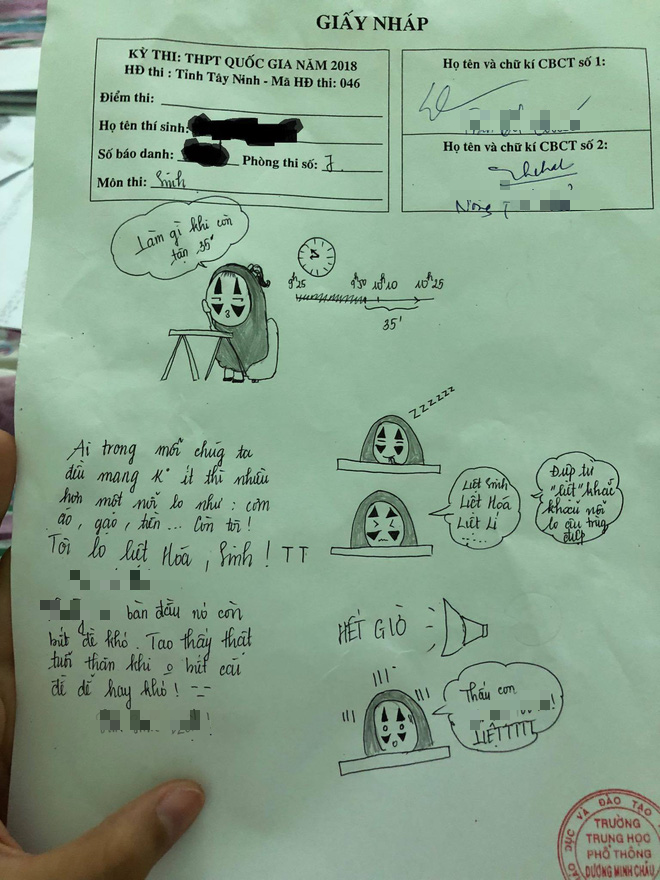 GIẤY NHÁP
KỲ THI: THPT QUỐC GIA NĂM 2018
HĐ thi : Tỉnh Tây Ninh - Mã HĐ thi: 046
Điểm thi:
Họ tên thí sinh:
Số báo danh: Phòng thi số: 7
Môn thi: Sinh
Họ tên và chữ kí CBCT số 1:
Họ tên và chữ kí CBCT số 2:
Nông T
Làm gì khi còn
tận 35'
9h25 9h50 10h10 10h25
35'
zzzzzz
Ai trong mỗi chúg ta
đều mang k° ít thì nhiều
hơn một nỗi lo như : cơm
áo, gạo, tiền ... Còn tôi!
Tôi lo liệt Hóa, Sinh ! TT
Liệt Sinh
Liệt Hóa
Liệt Lí
.....
Đúp tư
"liệt" khắc
khoải nỗi
lo câu trùg
điệp
bàn đầu nó còn
bít đề khó. Tao thấy thật
tuổi thân khi o bít cái
đề dễ hay khó ! --
HẾT GIỜ
Thấu con
!
LIỆTTTTT
DỤC VÀ ĐÀO TẠO
TRƯỜNG
TRUNG HỌC
PHỔ THÔNG
DƯƠNG MINH CHÂU